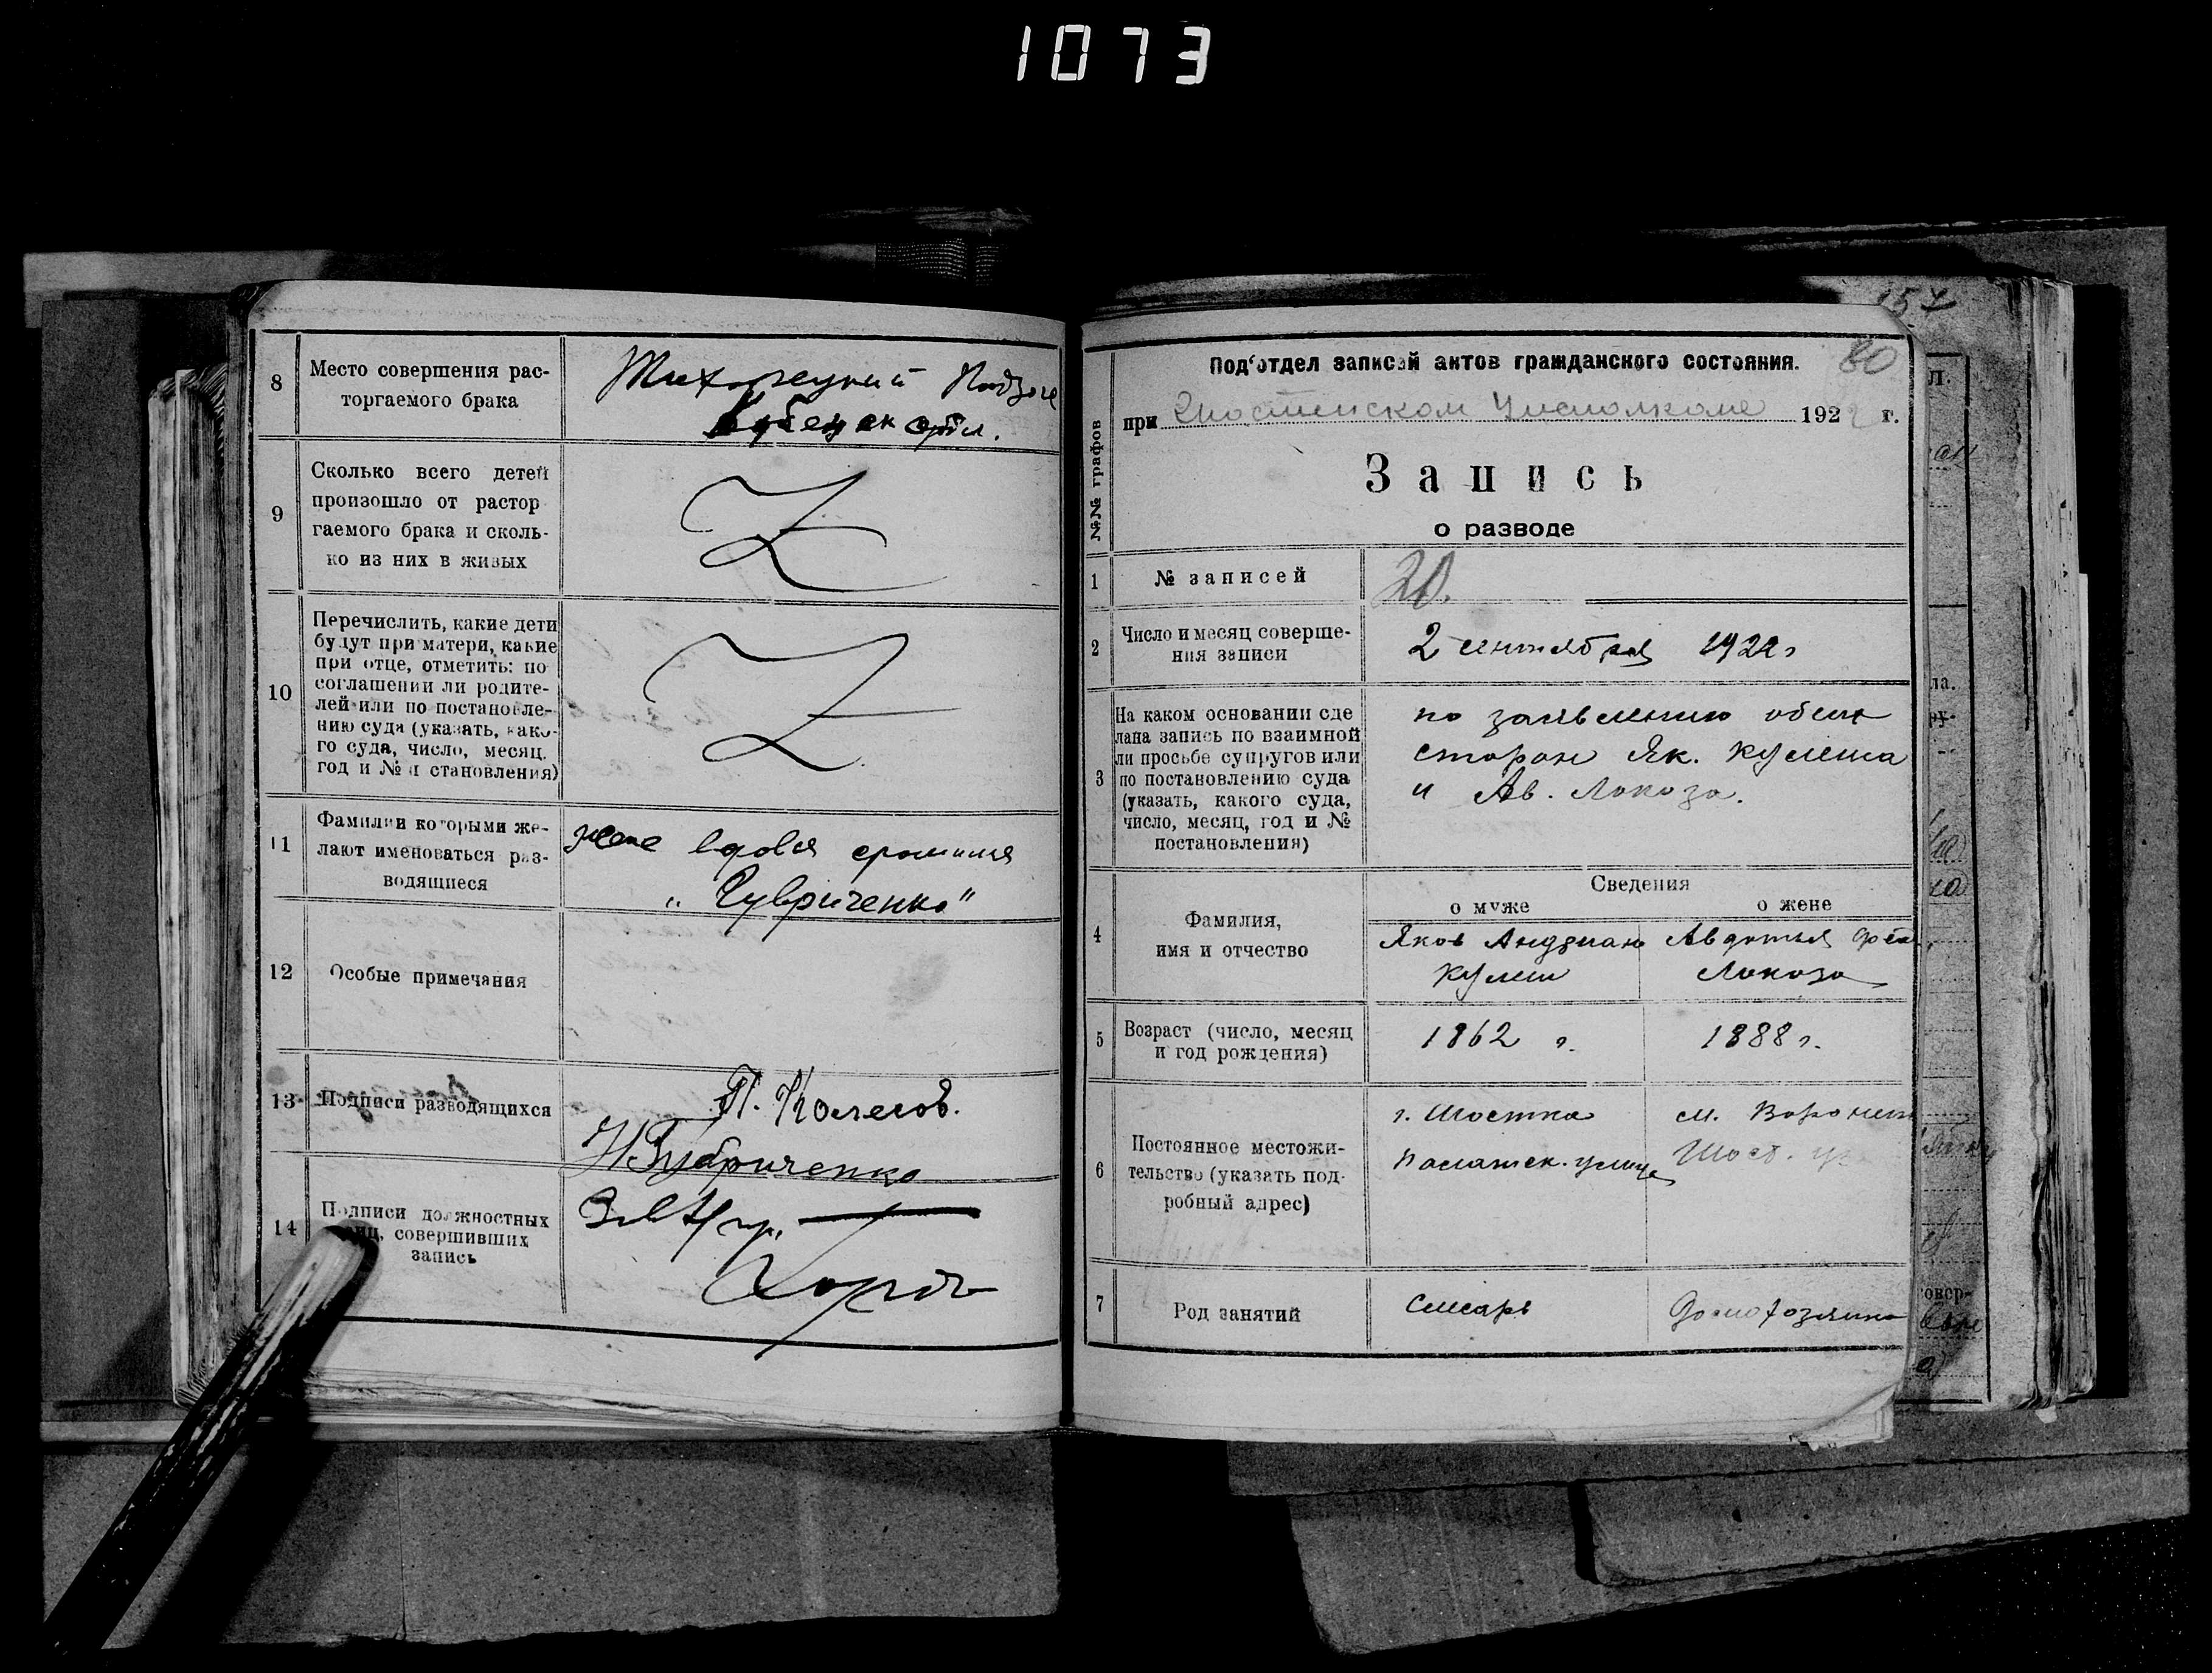 1073
8
Место совершения рас-
торгаемого брака
9
Сколько всего детей
произошло от растор
гаемого брака и сколь-
ко из них в живых
10
Перечислить, какие дети
будут при матери, какие
при отце, отметить: по
соглашении ли родите-
лей или по постановле-
нию суда (указать, како-
го суда, число, месяц.
год и № п становления)
11
Фамилии которыми же-
лают именоваться раз-
водящиеся
жене вдовья
12
Особые примечания
13
Подписи разводящихся
П. Колесов.
14
Подписи должностных
лиц, совершивших
запись
Под'отдел записей актов гражданского состояния.
80
при Шостенском 1922 г.
№№ графов
Запись
о разводе
1
№ записей
20.
2
Число и месяц соверше-
ния записи
2 сентября 1922 г
3
На каком основании сде
лана запись по взаимной
ли просьбе супругов или
по постановлению суда
(указать, какого суда,
число, месяц, год и №
постановления)
по заявлению обеих
сторон Як. Кулеша
и Ав. Локоза.
4
Фамилия,
имя и отчество
Сведения
о муже
о жене
Яков Андриан
Кулеш
Авдотья
Локоза
5
Возраст (число, месяц
и год рождения)
1862 г.
1888 г.
6
Постоянное местожи-
тельство (указать под-
робный адрес)
г. Шостка
улица
м. Воронеж
Шост. у
7
Род занятий
Слесарь
Домохозяйка
157